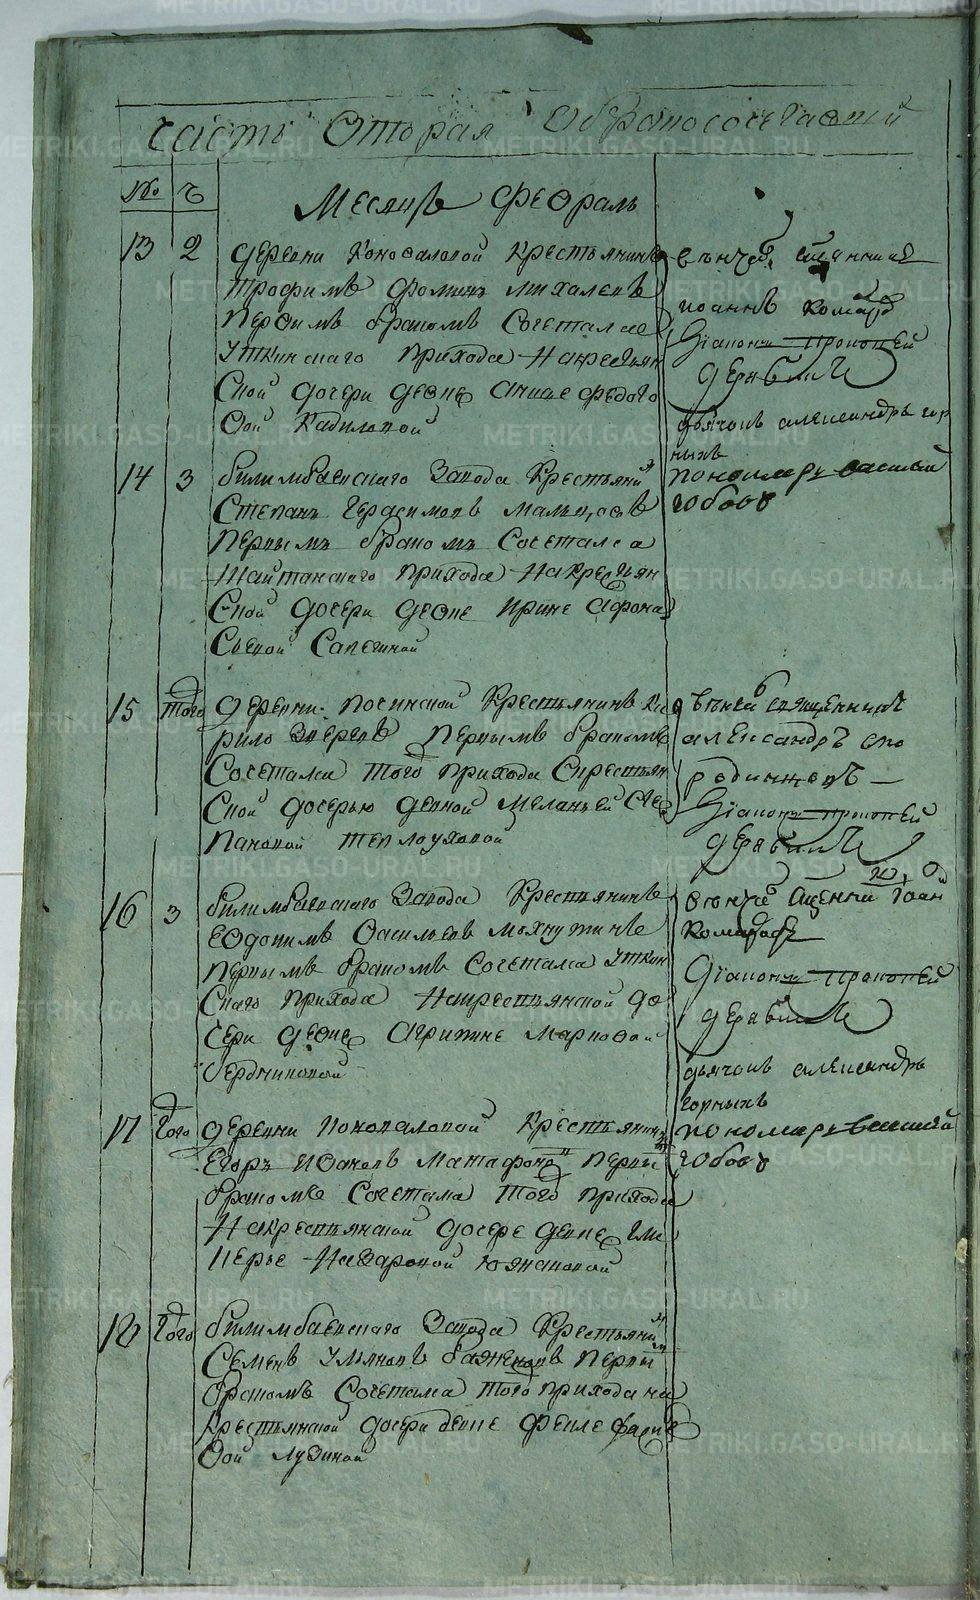 часть вторая о бракосочетавшихся
№ ч
Месяцъ февраль
13 2 деревни Коноваловой крестьянинъ
трофимъ фоминъ михалевъ
первымъ бракомъ сочетался
уткинскаго прихода на крестьян
ской дочери девке анисье федото
вой кабиловой
венчалъ священникъ
иоаннъ комаров
диаконъ прокопей
дерябинъ
дьячокъ александръ гор
ныхъ
пономарь василий
14 3 билимбаевскаго завода крестьянинъ
степанъ герасимовъ мальцовъ
первымъ бракомъ сочетался
шайтанскаго прихода на крестьян
ской дочери девке ирине афона
сьевой сапегиной
15 того деревни крестьянинъ ки
рило зверевъ первымъ бракомъ
сочетался того прихода с крестьян
ской дочерью девкой меланьей сте
пановой теплоуховой
венчалъ священникъ
александръ смо
родинцовъ
диаконъ прокопей
дерябинъ
16 3 билимбаевскаго завода крестьянинъ
евдокимъ васильевъ махнуткинъ
первымъ бракомъ сочетался уткин
скаго прихода на крестьянской до
чери девке агрипине марковой
бердниковой
венчалъ священникъ иоан
комаровъ
диаконъ прокопей
дерябинъ
дьячокъ александръ
горныхъ
пономарь василий
17 того деревни Коноваловой крестьянинъ
егоръ ивановъ матафоновъ первым
бракомъ сочетался того прихода
на крестьянской дочере девке гли
керье назаровой южаковой
18 того билимбаевскаго завода крестьянинъ
семенъ ульяновъ баженовъ первым
бракомъ сочетался того прихода на
крестьянской дочери девке фекле
вой лузиной
METRIKI.GASO-URAL.RU